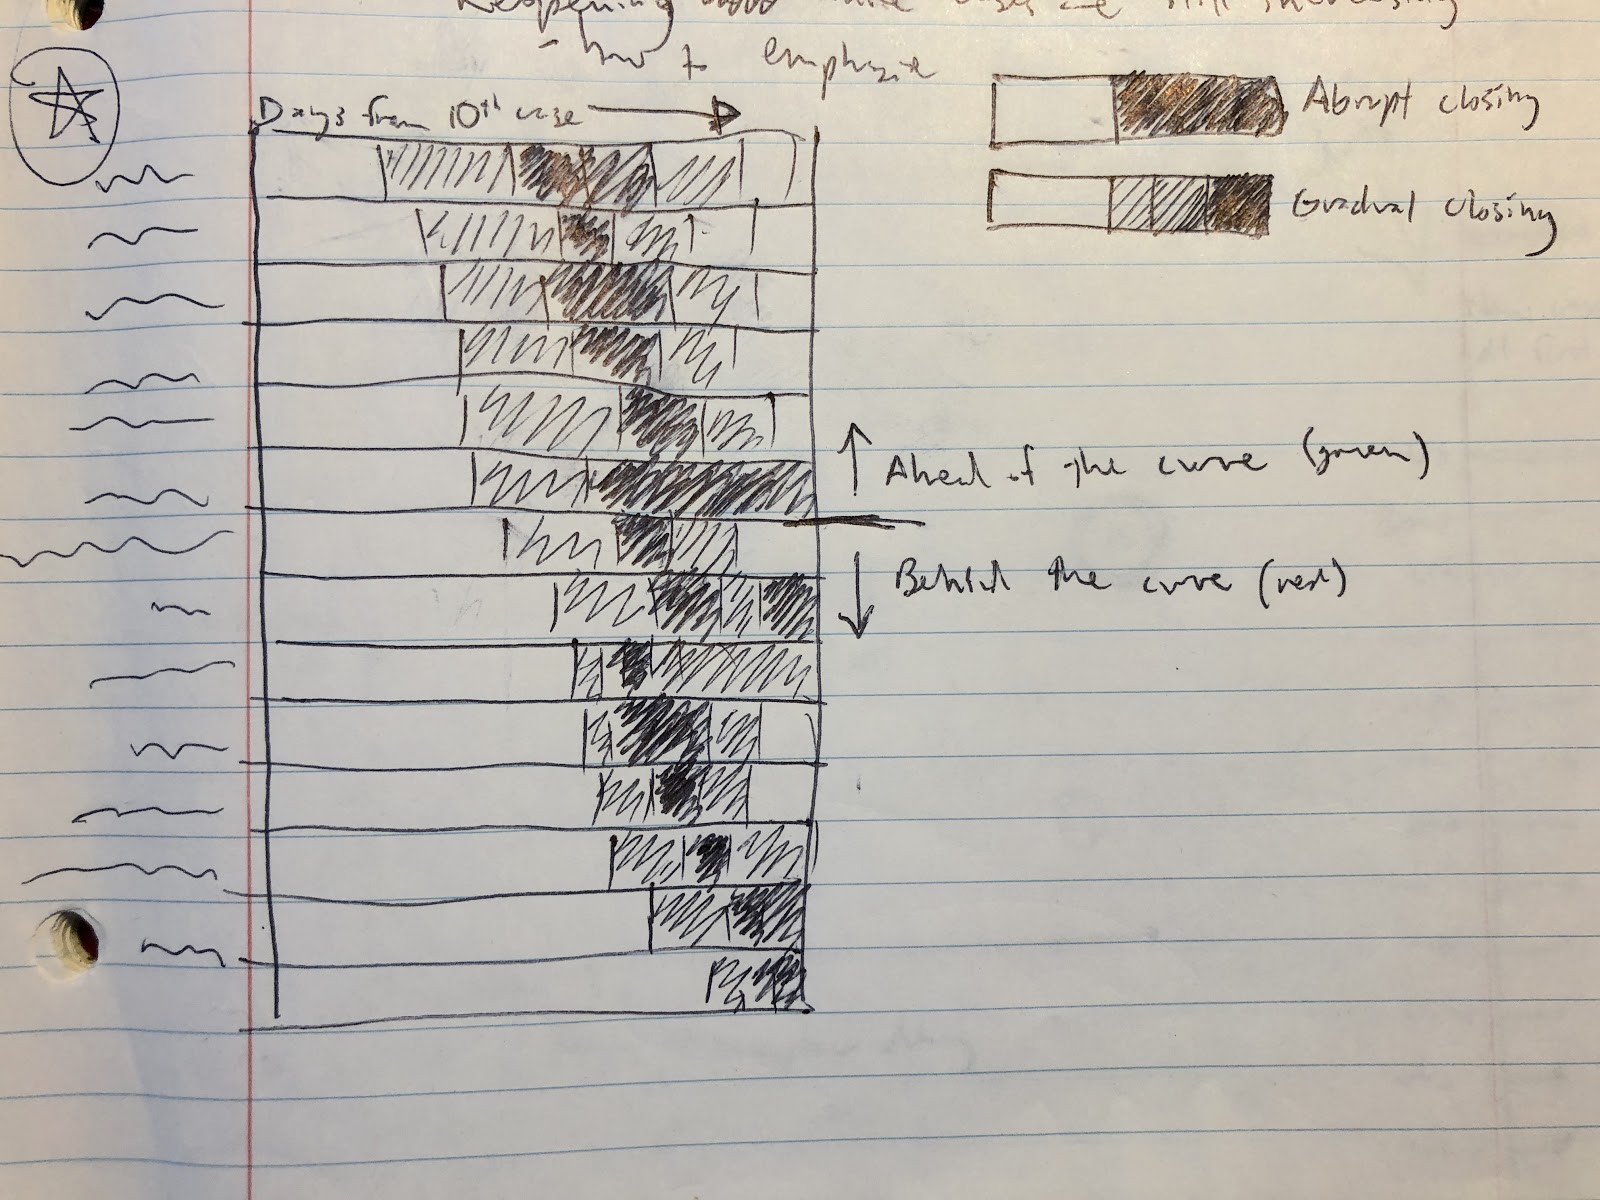 Reopening while cases are still increasing
- how to emphasize
Days from 10th case
Abrupt closing
Gradual closing
↑ Ahead of the curve (green)
↓ Behind the curve (red)